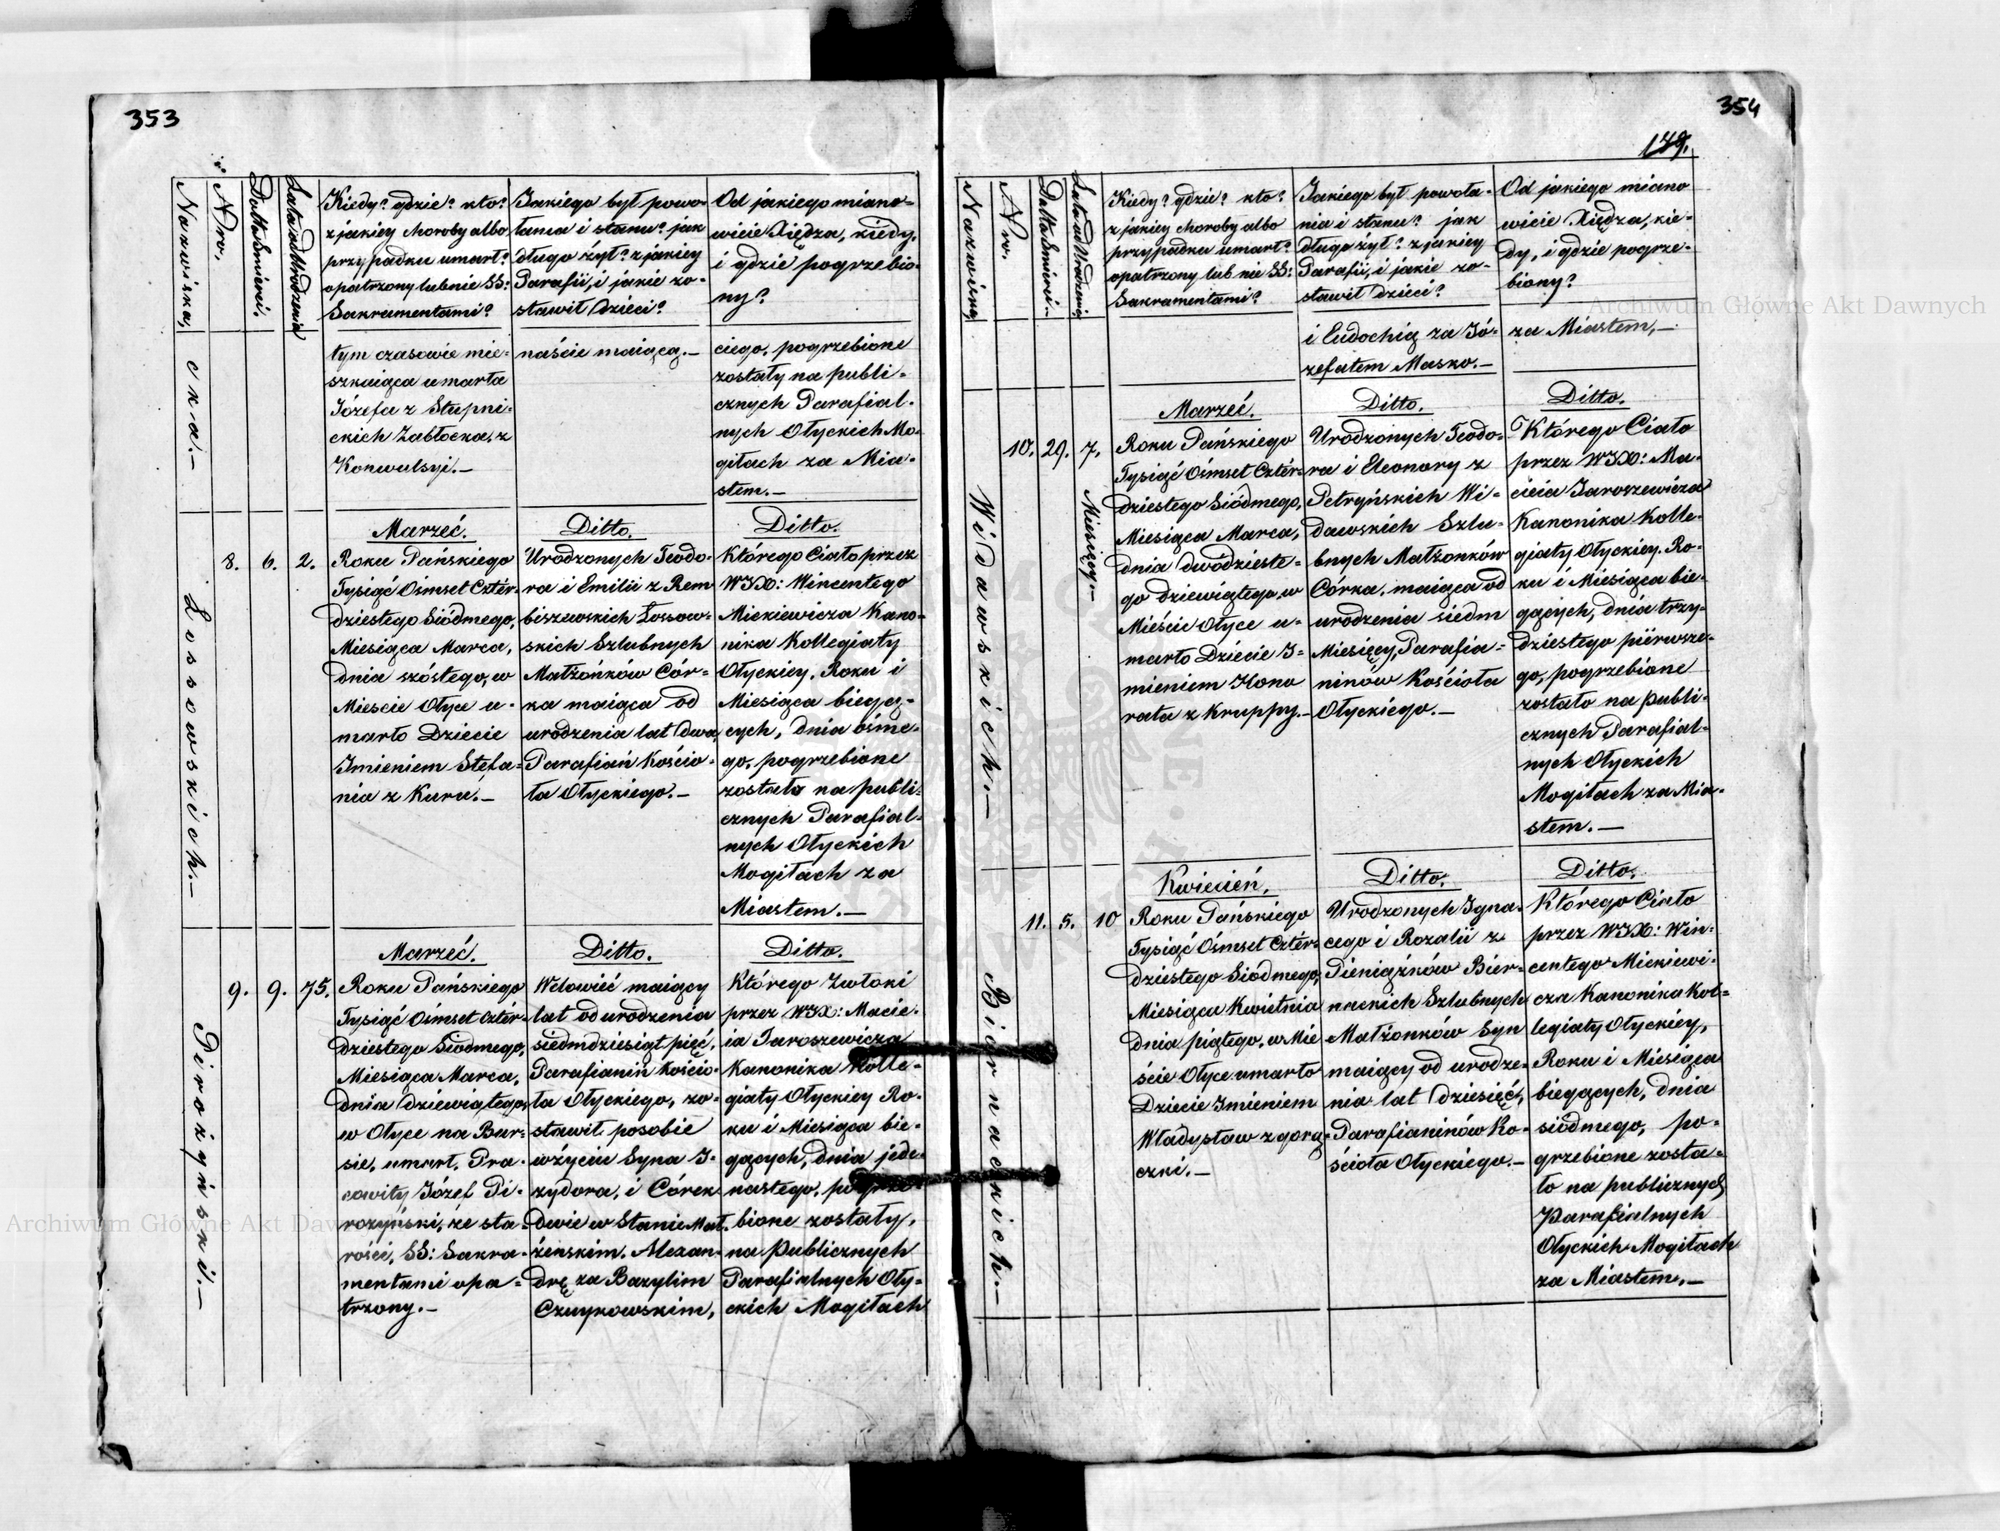 353
Nazwiska,
Nro.
Datta Śmierci.
Lata od Urodzenia
Kiedy? gdzie? kto?
z jakiey choroby albo
przypadku umarł?
opatrzony lub nie SS:
Sakramentami?
Jakiego był powo-
łania i stanu? jak
długo żył? z jakiey
Parafii, i jakie zo-
stawił Dzieci?
Od jakiego miano-
wicie Xiędza, kiedy,
i gdzie pogrzebio-
ny?
cka.-
tym czasowie mie-
szkaiąca umarła
Józefa z Stupni-
ckich Zabłocka, z
Konwulsyi.-
naście maiącą.-
ciego, pogrzebione
zostały na publi-
cznych Parafial-
nych Ołyckich Mo-
giłach za Mia-
stem.-
Lossowskich.-
8.
6.
2.
Marzeć.
Roku Pańskiego
Tysiąć Ośmset Czter-
dziestego Siódmego,
Miesiąca Marca,
dnia szóstego, w
Mieście Ołyce u-
marło Dziecie
Imieniem Stefa-
nia z Kuru.-
Ditto.
Urodzonych Teodo-
ra i Emilii z Rem
biszewskich Lossow-
skich Szlubnych
Małżónków Cór-
ka maiąca od
urodzenia lat dwa,
Parafiań Kościo-
ła Ołyckiego.-
Ditto.
Którego Ciało przez
WJX: Wincentego
Mickiewicza Kano-
nika Kollegiaty
Ołyckiey, Roku i
Miesiąca bieżą-
cych, dnia ósme-
go, pogrzebione
zostało na publi-
cznych Parafial-
nych Ołyckich
Mogiłach za
Miastem.-
Pirożyński.-
9.
9.
75.
Marzeć.
Roku Pańskiego
Tysiąć Ośmset Czter-
dziestego Siódmego,
Miesiąca Marca,
dnia dziewiątego,
w Ołyce na Bur-
sie, umarł, Pra-
cowity Józef Pi-
rożyński, ze sta-
rości, SS: Sakra-
mentami opa-
trzony.-
Ditto.
Wdowieć maiący
lat od urodzenia
siedmdziesiąt pięć,
Parafianiń Kościo-
ła Ołyckiego, zo-
stawił posobie
wżyciu Syna I-
zydora, i Córek
dwie w Stanie Mał-
żeńskim. Alexan-
drę za Bazylim
Czuykowskim,
Ditto.
Którego Zwłoki
przez WJX: Macie-
ia Jaroszewicza
Kanonika Kolle-
giaty Ołyckiey Ro-
ku i Miesiąca bie-
gących, dnia jede-
nastego, pogrze-
bione zostały,
na Publicznych
Parafialnych Oły-
ckich Mogiłach
354
179.
Nazwiska,
Nro.
Datta Śmierci.
Lata od Urodzenia
Kiedy? gdzie? kto?
z jakiey choroby albo
przypadku umarł?
opatrzony lub nie SS:
Sakramentami?
Jakiego był powoła-
nia i stanu? jak
długo żył? z jakiey
Parafii, i jakie zo-
stawił dzieci?
Od jakiego miano
wicie Xiędza, kie-
dy, i gdzie pogrze-
biony?
i Eudochią za Jó-
zefatem Maszo.-
za Miastem,-
Widawskich.-
10.
29.
7.
Miesięcy.-
Marzeć.
Roku Pańskiego
Tysiąć Ośmset Czter-
dziestego Siódmego,
Miesiąca Marca,
dnia dwódzieste-
go dziewiątego, w
Mieście Ołyce u-
marło Dziecie I-
mieniem Hono
rata z Kruppy.-
Ditto.
Urodzonych Teodo-
ra i Eleonory z
Petryńskich Wi-
dawskich Szlu-
bnych Małżonków
Córka, maiąca od
urodzenia siedm
Miesięcy, Parafia-
ninów Kościoła
Ołyckiego.-
Ditto.
Którego Ciało
przez WJX: Ma-
cieia Jaroszewicza
Kanonika Kolle-
giaty Ołyckiey. Ro-
ku i Miesiąca bie-
gących, dnia trzy-
dziestego piérwsze-
go, pogrzebione
zostało na publi-
cznych Parafial-
nych Ołyckich
Mogiłach za Mia-
stem.-
Biernackich.-
11.
5.
10
Kwiecień.
Roku Pańskiego
Tysiąć Ośmset Czter-
dziestego Siódmego,
Miesiąca Kwietnia
dnia piątego, w Mie
ście Ołyce umarło
Dziecie Imieniem
Władysław z gorą-
czki.-
Ditto.
Urodzonych Igna-
cego i Rozalii z
Pieniążków Bier-
nackich Szlubnych
Małżonków Syn
maiący od urodze-
nia lat dziesięć,
Parafianinów Ko-
ścioła Ołyckiego.-
Ditto.
Którego Ciało
przez WJX: Win-
centego Mickiewi-
cza Kanonika Kol-
legiaty Ołyckiéy,
Roku i Miesiąca
biegących, dnia
siódmego, po-
grzebione zosta-
ło na publicznych
Parafialnych
Ołyckich Mogiłach
za Miastem.-
Archiwum Główne Akt Dawnych
Archiwum Główne Akt Dawnych